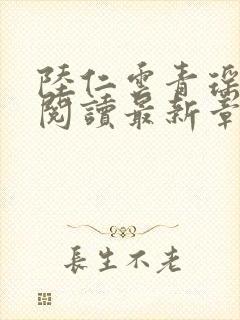 陸仁雲青瑶
閱讀最新章
長生不老